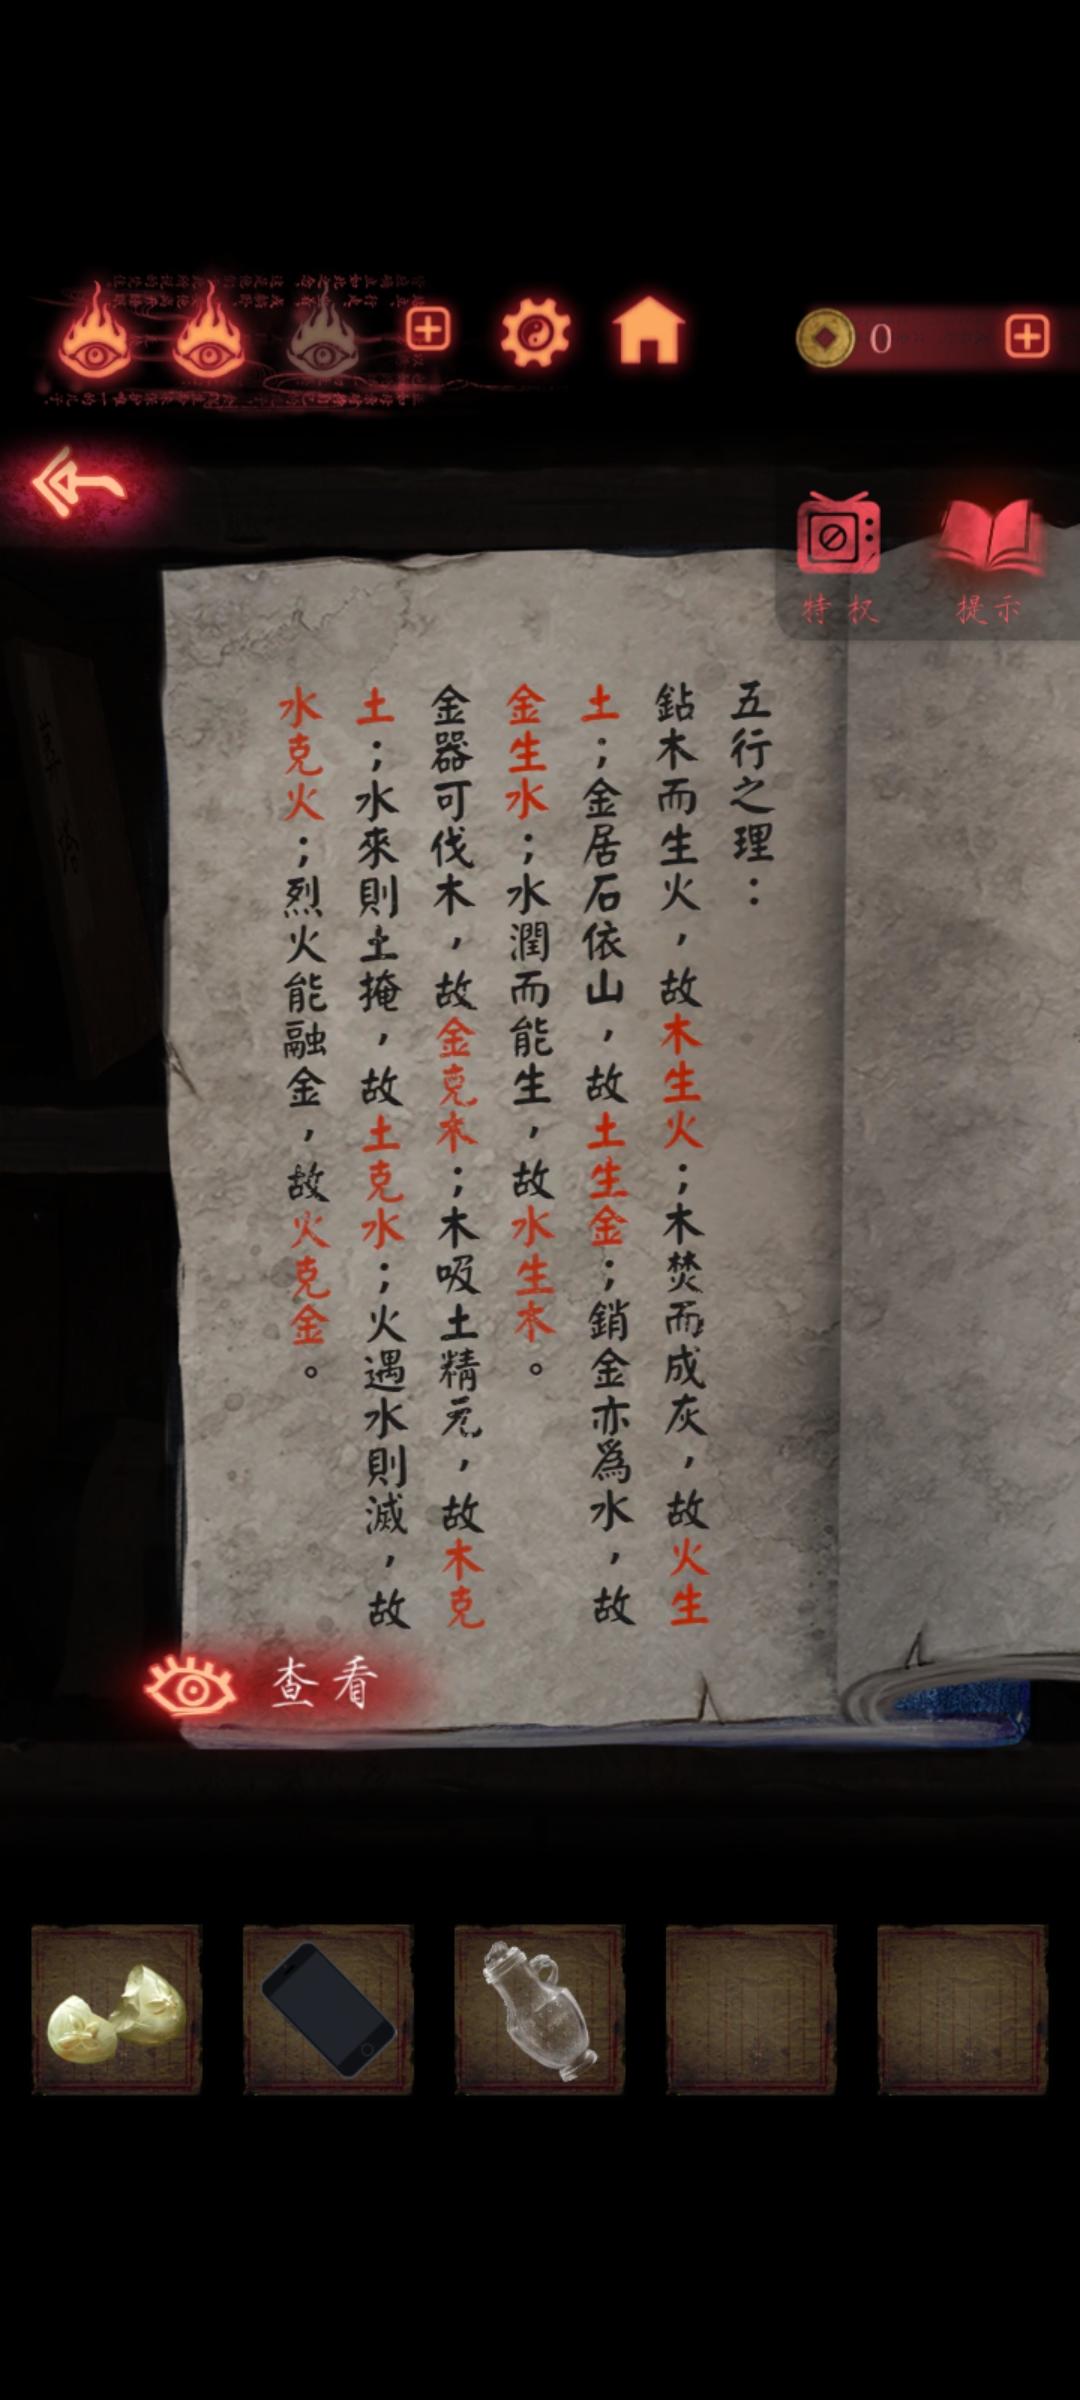 0
特权
提示
五行之理：
鉆木而生火，故木生火；木焚而成灰，故火生
土；金居石依山，故土生金；銷金亦爲水，故
金生水；水潤而能生，故水生木。
金器可伐木，故金克木；木吸土精元，故木克
土；水來則土掩，故土克水；火遇水則滅，故
水克火；烈火能融金，故火克金。
查看